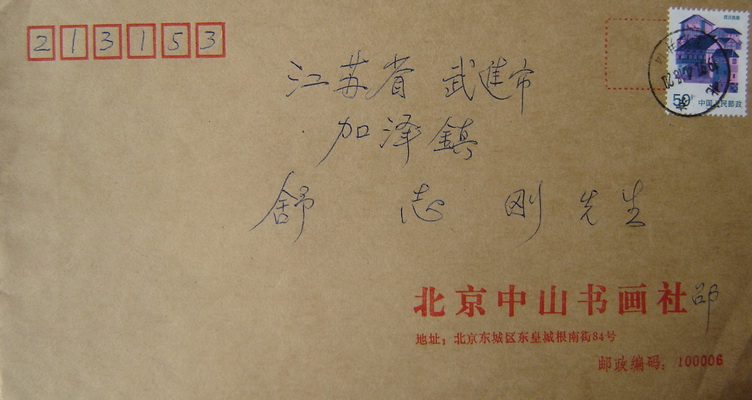 213153
江苏省 武進市
加泽鎮
舒 志 刚 先生
50分
中国人民邮政
北京中山书画社 邵
地址：北京东城区东皇城根南街84号
邮政编码：100006